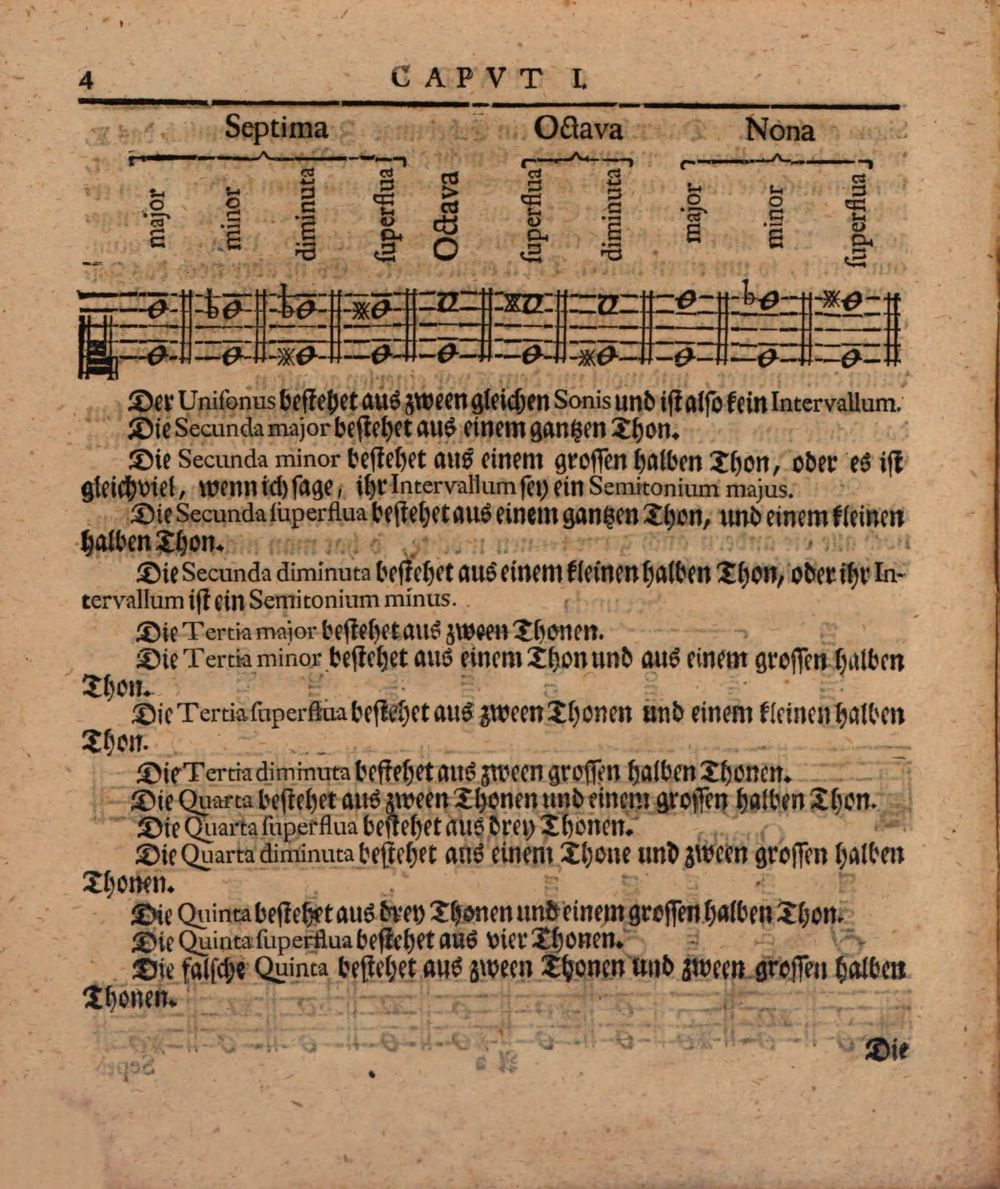 4 CAPVT I.
Septima Octava Nona
major minor diminuta ſuperflua Octava ſuperflua diminuta major minor ſuperflua
Der Uniſonus beſtehet aus zween gleichen Sonis und iſt alſo kein Intervallum.
Die Secunda major beſtehet aus einem gantzen Thon.
Die Secunda minor beſtehet aus einem groſſen halben Thon, oder es iſt
gleichviel, wenn ich ſage, ihr Intervallum ſey ein Semitonium majus.
Die Secunda ſuperflua beſtehet aus einem gantzen Thon, und einem kleinen
halben Thon.
Die Secunda diminuta beſtehet aus einem kleinen halben Thon, oder ihr In-
tervallum iſt ein Semitonium minus.
Die Tertia major beſtehet aus zween Thonen.
Die Tertia minor beſtehet aus einem Thon und aus einem groſſen halben
Thon.
Die Tertia ſuperflua beſtehet aus zween Thonen und einem kleinen halben
Thon.
Die Tertia diminuta beſtehet aus zween groſſen halben Thonen.
Die Quarta beſtehet aus zween Thonen und einem groſſen halben Thon.
Die Quarta ſuperflua beſtehet aus drey Thonen.
Die Quarta diminuta beſtehet aus einem Thone und zween groſſen halben
Thonen.
Die Quinta beſtehet aus drey Thonen und einem groſſen halben Thon.
Die Quinta ſuperflua beſtehet aus vier Thonen.
Die falſche Quinta beſtehet aus zween Thonen und zween groſſen halben
Thonen.
Die